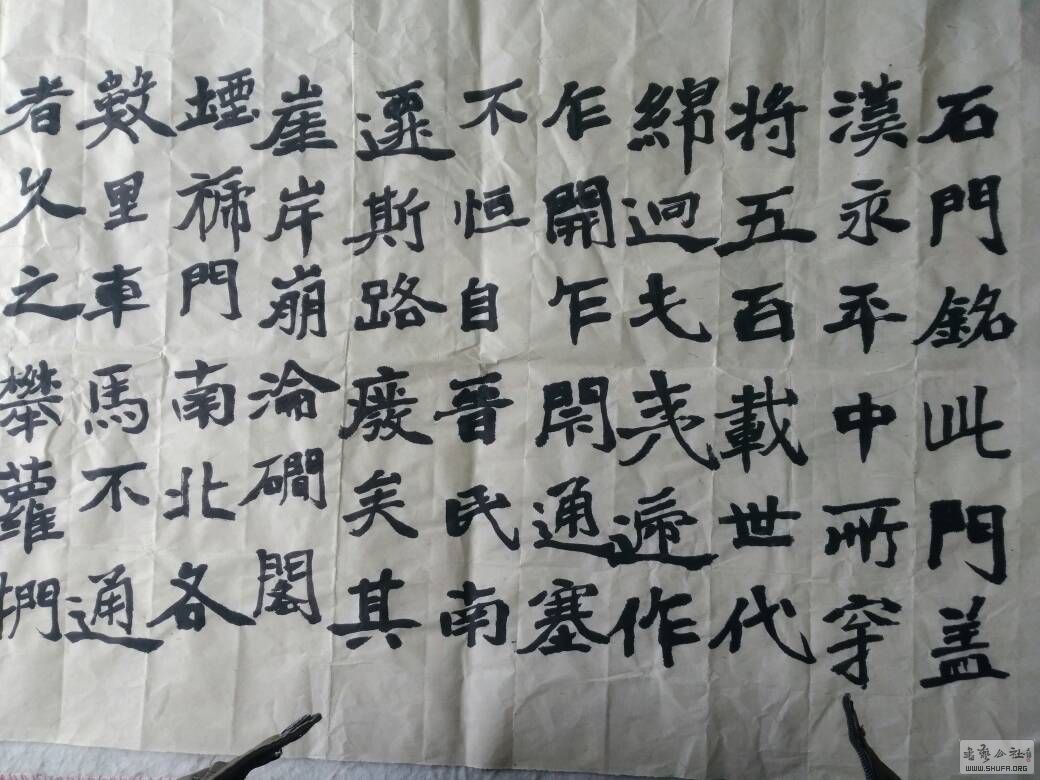 石門銘此門蓋
漢永平中所穿
将五百載世代
綿迥戎夷遞作
乍開乍閇通塞
不恒自晉民南
遷斯路廢矣其
崖岸崩淪磵閣
堙褫門南北各
數里車馬不通
者久之攀蘿捫
書藝公社
WWW.SHUFA.ORG